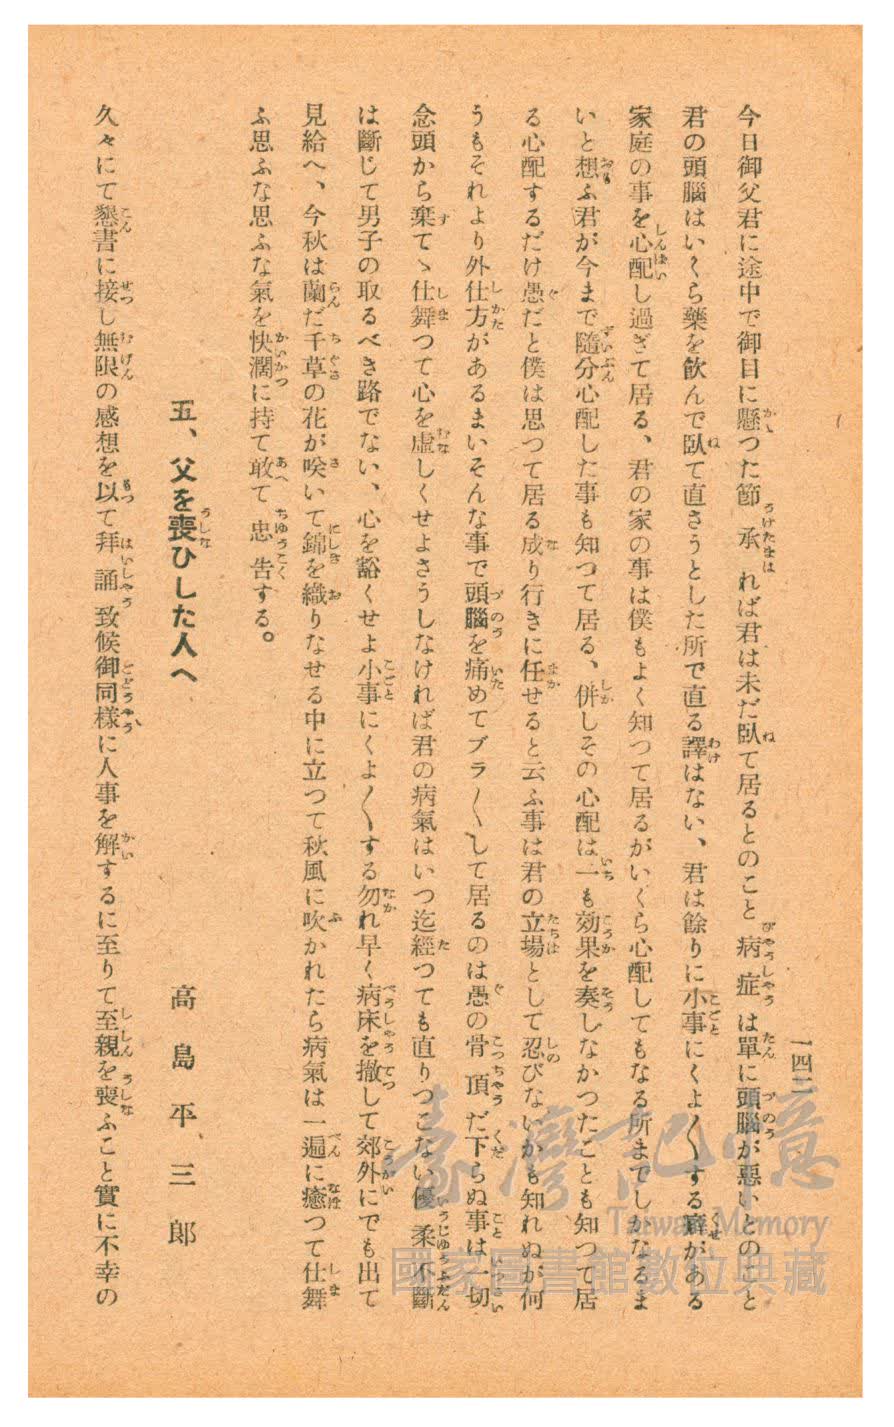 一四二
今日御父君に途中で御目に懸つた節承れば君は未だ臥て居るとのこと病症は單に頭腦が惡いとのこと
君の頭腦はいくら藥を飮んで臥て直さうとした所で直る譯はない、君は餘りに小事にくよ〱する癖がある
家庭の事を心配し過ぎて居る、君の家の事は僕もよく知つて居るがいくら心配してもなる所までしかなるま
いと想ふ君が今まで隨分心配した事も知つて居る、併しその心配は一も効果を奏しなかつたことも知つて居
る心配するだけ愚だと僕は思つて居る成り行きに任せると云ふ事は君の立場として忍びないかも知れぬが何
うもそれより外仕方があるまいそんな事で頭腦を痛めてブラ〱して居るのは愚の骨頂だ下らぬ事は一切
念頭から棄てゝ仕舞つて心を虛しくせよさうしなければ君の病氣はいつ迄經つても直りつこない優柔不斷
は斷じて男子の取るべき路でない、心を豁くせよ小事にくよ〱する勿れ早く病床を撤して郊外にでも出て
見給へ、今秋は蘭だ千草の花が咲いて錦を織りなせる中に立つて秋風に吹かれたら病氣は一遍に癒つて仕舞
ふ思ふな思ふな氣を快濶に持て敢て忠告する。
五、父を喪ひした人へ
高島平三郎
久々にて懇書に接し無限の感想を以て拜誦致候御同樣に人事を解するに至りて至親を喪ふこと實に不幸の
臺灣記憶
Taiwan Memory
國家圖書館數位典藏